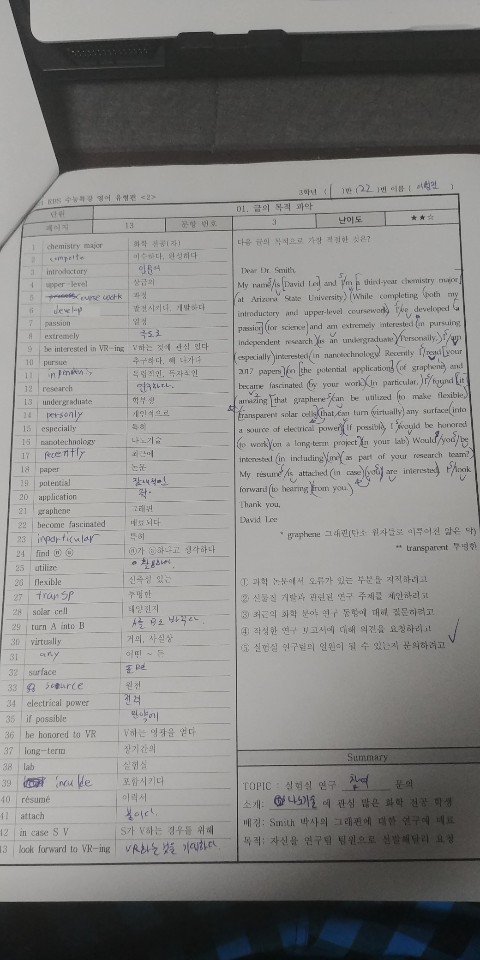 EBS 수능특강 영어 유형편 <2>
3학년 ( 1 )반 (22 )번 이름 ( )
단원 01. 글의 목적 파악
페이지 13 문항 번호 3 난이도 ★★☆
1 chemistry major 화학 전공(자)
2 complete 이수하다, 완성하다
3 introductory 입문의
4 upper-level 상급의
5 course work 과정
6 develop 발전시키다, 개발하다
7 passion 열정
8 extremely 극도로
9 be interested in VR-ing V하는 것에 관심 있다
10 pursue 추구하다, 해 나가다
11 독립적인, 독자적인
12 research 연구하다.
13 undergraduate 학부생
14 personly 개인적으로
15 especially 특히
16 nanotechnology 나노기술
17 recently 최근에
18 paper 논문
19 potential 잠재적인
20 application
21 graphene 그래핀
22 become fascinated 매료되다
23 inparticular 특히
24 find ⓐ ⓑ ⓐ가 ⓑ하다고 생각하다
25 utilize 활용하다
26 flexible 신축성 있는
27 transp 투명한
28 solar cell 태양전지
29 turn A into B A를 B로 바꾸다.
30 virtually 거의, 사실상
31 any 어떤 ~ 든
32 surface 표면
33 source 원천
34 electrical power 전력
35 if possible 만약에
36 be honored to VR V하는 영광을 얻다
37 long-term 장기간의
38 lab 실험실
39 포함시키다
40 résumé 이력서
41 attach 붙이다.
42 in case S V S가 V하는 경우를 위해
43 look forward to VR-ing VR하는 것을 기대하다.
다음 글의 목적으로 가장 적절한 것은?
Dear Dr. Smith,
My name is David Lee and I'm a third-year chemistry major
at Arizona State University. While completing both my
introductory and upper-level coursework, I've developed a
passion for science and am extremely interested in pursuing
independent research as an undergraduate. Personally, I am
especially interested in nanotechnology. Recently I read your
2017 papers on the potential applications of graphene and
became fascinated by your work. In particular, I found it
amazing that graphene can be utilized to make flexible,
transparent solar cells that can turn virtually any surface into
a source of electrical power. If possible, I would be honored
to work on a long-term project in your lab. Would you be
interested in including me as part of your research team?
My résumé is attached in case you are interested. I look
forward to hearing from you.
Thank you,
David Lee
* graphene 그래핀(탄소 원자들로 이루어진 얇은 막)
** transparent 투명한
① 과학 논문에서 오류가 있는 부분을 지적하려고
② 신물질 개발과 관련된 연구 주제를 제안하려고
③ 최근의 화학 분야 연구 동향에 대해 질문하려고
④ 작성한 연구 보고서에 대해 의견을 요청하려고
⑤ 실험실 연구팀의 일원이 될 수 있는지 문의하려고
Summary
TOPIC : 실험실 연구 참여 문의
소개: 나노기술 에 관심 많은 화학 전공 학생
배경: Smith 박사의 그래핀에 대한 연구에 매료
목적: 자신을 연구팀 팀원으로 선발해달라 요청